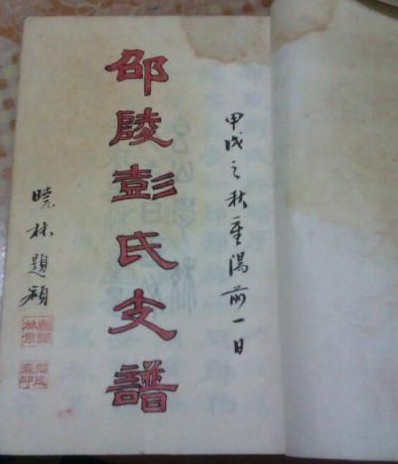 甲戌之秋重陽前一日
邵陵彭氏支譜
晓林題額